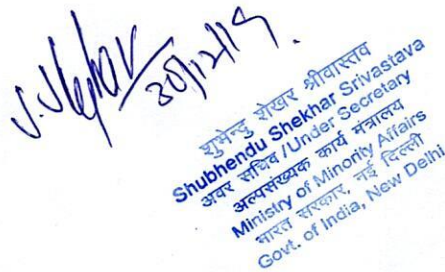 30/12/19.
शुभेन्दु शेखर श्रीवास्तव
Shubhendu Shekhar Srivastava
अवर सचिव /Under Secretary
अल्पसंख्यक कार्य मंत्रालय
Ministry of Minority Affairs
भारत सरकार, नई दिल्ली
Govt. of India, New Delhi